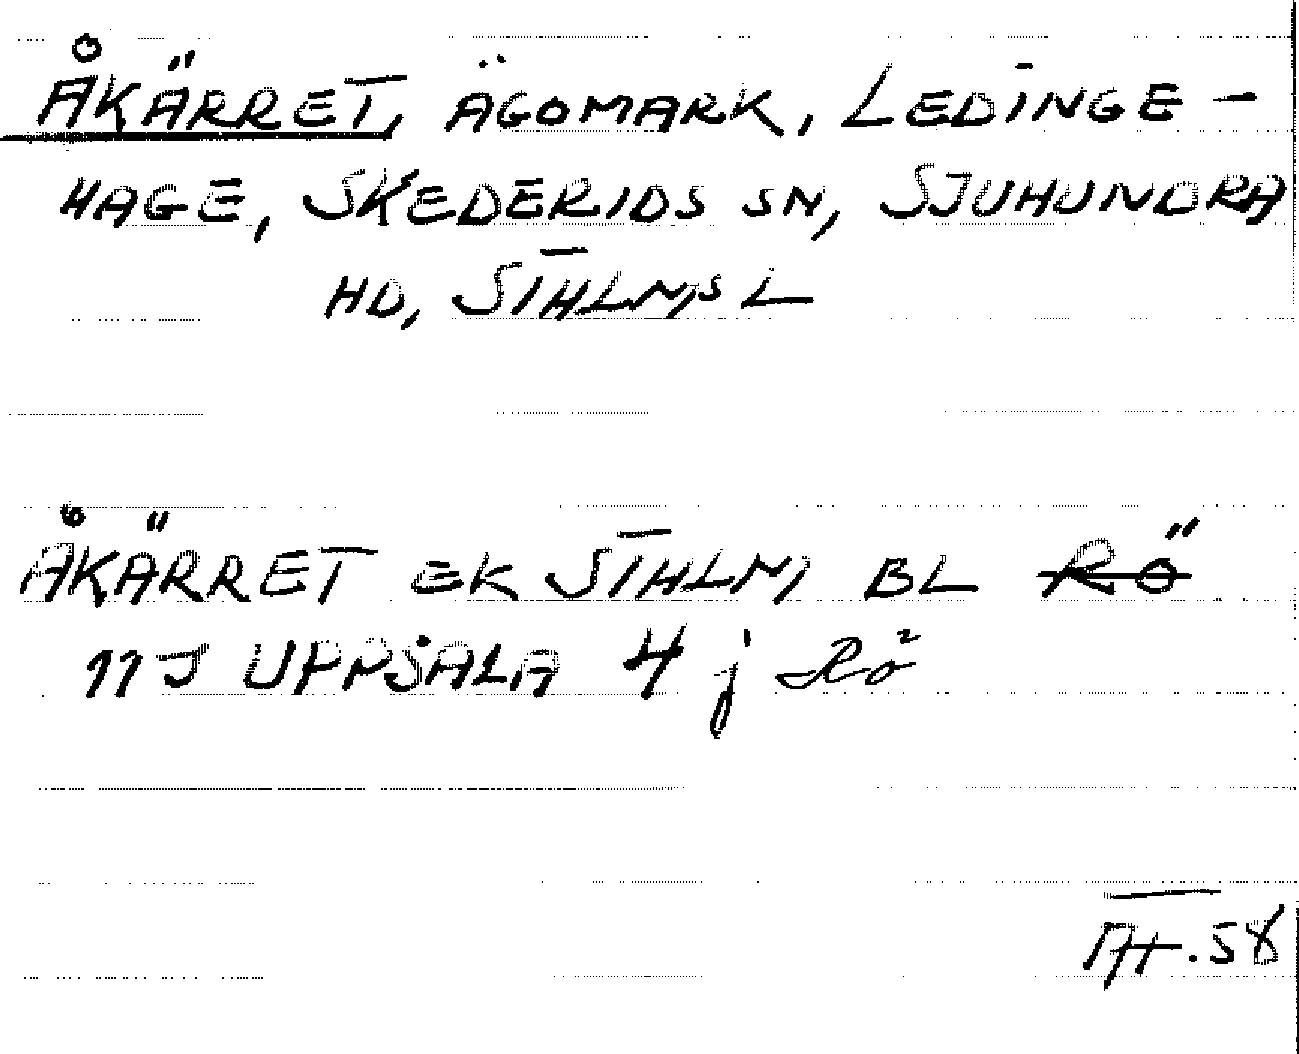 ÅKÄRRET, ÄGOMARK, LEDINGE-
HAGE, SKEDERIDS SN, SJUHUNDRA
HD, STHLMS L
ÅKÄRRET EK STHLM, BL RÖ
11J UPPSALA 4 j Rö